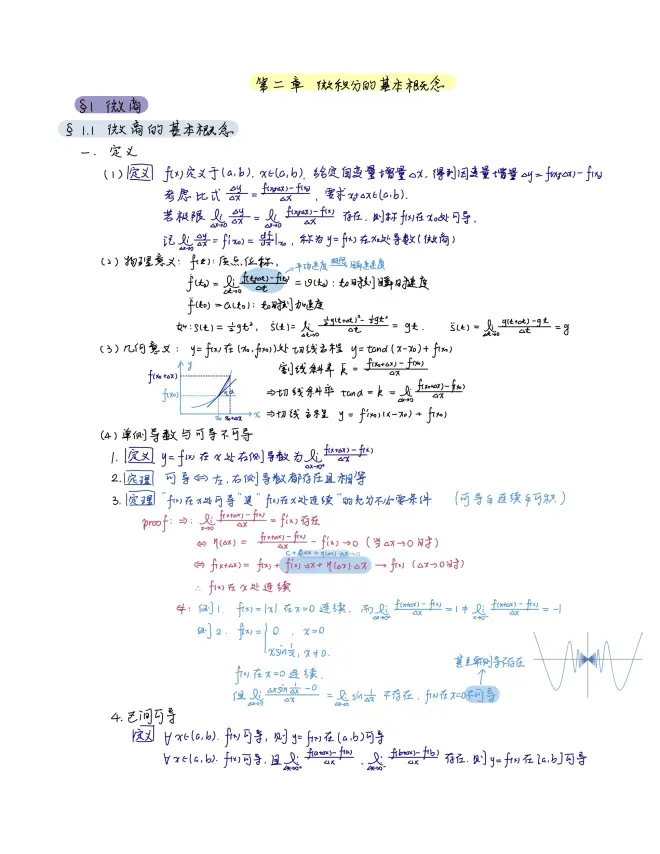 第二章 微积分的基本概念
§1 微商
§1.1 微商的基本概念
一. 定义
(1) 定义 f(x)定义于(a,b), x∈(a,b), 给定自变量增量Δx, 得到因变量增量Δy=f(x₀+Δx)-f(x₀)
考虑比式 Δy/Δx = (f(x₀+Δx)-f(x₀))/Δx, 要求x₀+Δx∈(a,b).
若极限 lim_{Δx→0} Δy/Δx = lim_{Δx→0} (f(x₀+Δx)-f(x₀))/Δx 存在, 则称f(x)在x₀处可导,
记 lim_{Δx→0} Δy/Δx = f'(x₀) = df/dx|x₀, 称为y=f(x)在x₀处导数(微商)
(2) 物理意义: f(t): 质点位移,
平均速度 极限 瞬时速度
f'(t₀) = lim_{Δt→0} (f(t₀+Δt)-f(t₀))/Δt = v(t₀): t₀时刻瞬时速度
f''(t₀) = a(t₀): t₀时刻加速度
如: S(t)=½gt², Ṡ(t)= lim_{Δt→0} (½g(t+Δt)²-½gt²)/Δt = gt. S̈(t)= lim_{Δt→0} (g(t+Δt)-gt)/Δt = g
(3) 几何意义: y=f(x)在(x₀,f(x₀))处切线方程 y=tanα(x-x₀)+f(x₀)
y
f(x₀+Δx)
f(x₀)
α
x₀ x₀+Δx
x
割线斜率 k̄ = (f(x₀+Δx)-f(x₀))/Δx
⇒切线斜率 tanα=k= lim_{Δx→0} (f(x₀+Δx)-f(x₀))/Δx
⇒切线方程 y=f'(x₀)(x-x₀)+f(x₀)
(4) 单侧导数与可导不可导
1. 定义 y=f(x)在x处右侧导数为 lim_{Δx→0⁺} (f(x+Δx)-f(x))/Δx
2. 定理 可导⇔左、右侧导数都存在且相等
3. 定理 "f(x)在x处可导"是"f(x)在x处连续"的充分不必要条件 (可导⇉连续⇉可积)
proof: ⇒: lim_{Δx→0} (f(x+Δx)-f(x))/Δx = f'(x)存在
⇔ η(Δx) = (f(x+Δx)-f(x))/Δx - f'(x)→0 (当Δx→0时)
⇔ f(x+Δx)= f(x)+f'(x)·Δx+η(Δx)·Δx → f(x) (Δx→0时)
∴ f(x)在x处连续
⇍: 例1. f(x)=|x| 在x=0连续, 而 lim_{Δx→0⁺} (f(x+Δx)-f(x))/Δx = 1 ≠ lim_{Δx→0⁻} (f(x+Δx)-f(x))/Δx = -1
例2. f(x)={ 0, x=0
xsin1/x, x≠0.
f(x)在x=0连续.
甚至单侧导不存在
但 lim_{Δx→0} (Δxsin 1/Δx -0)/Δx = lim_{Δx→0} sin 1/Δx 不存在, f(x)在x=0不可导
4. 区间可导
定义 ∀x∈(a,b). f(x)可导, 则y=f(x)在(a,b)可导
∀x∈(a,b). f(x)可导, 且 lim_{Δx→0⁺} (f(a+Δx)-f(a))/Δx, lim_{Δx→0⁻} (f(b+Δx)-f(b))/Δx 存在, 则y=f(x)在[a,b]可导